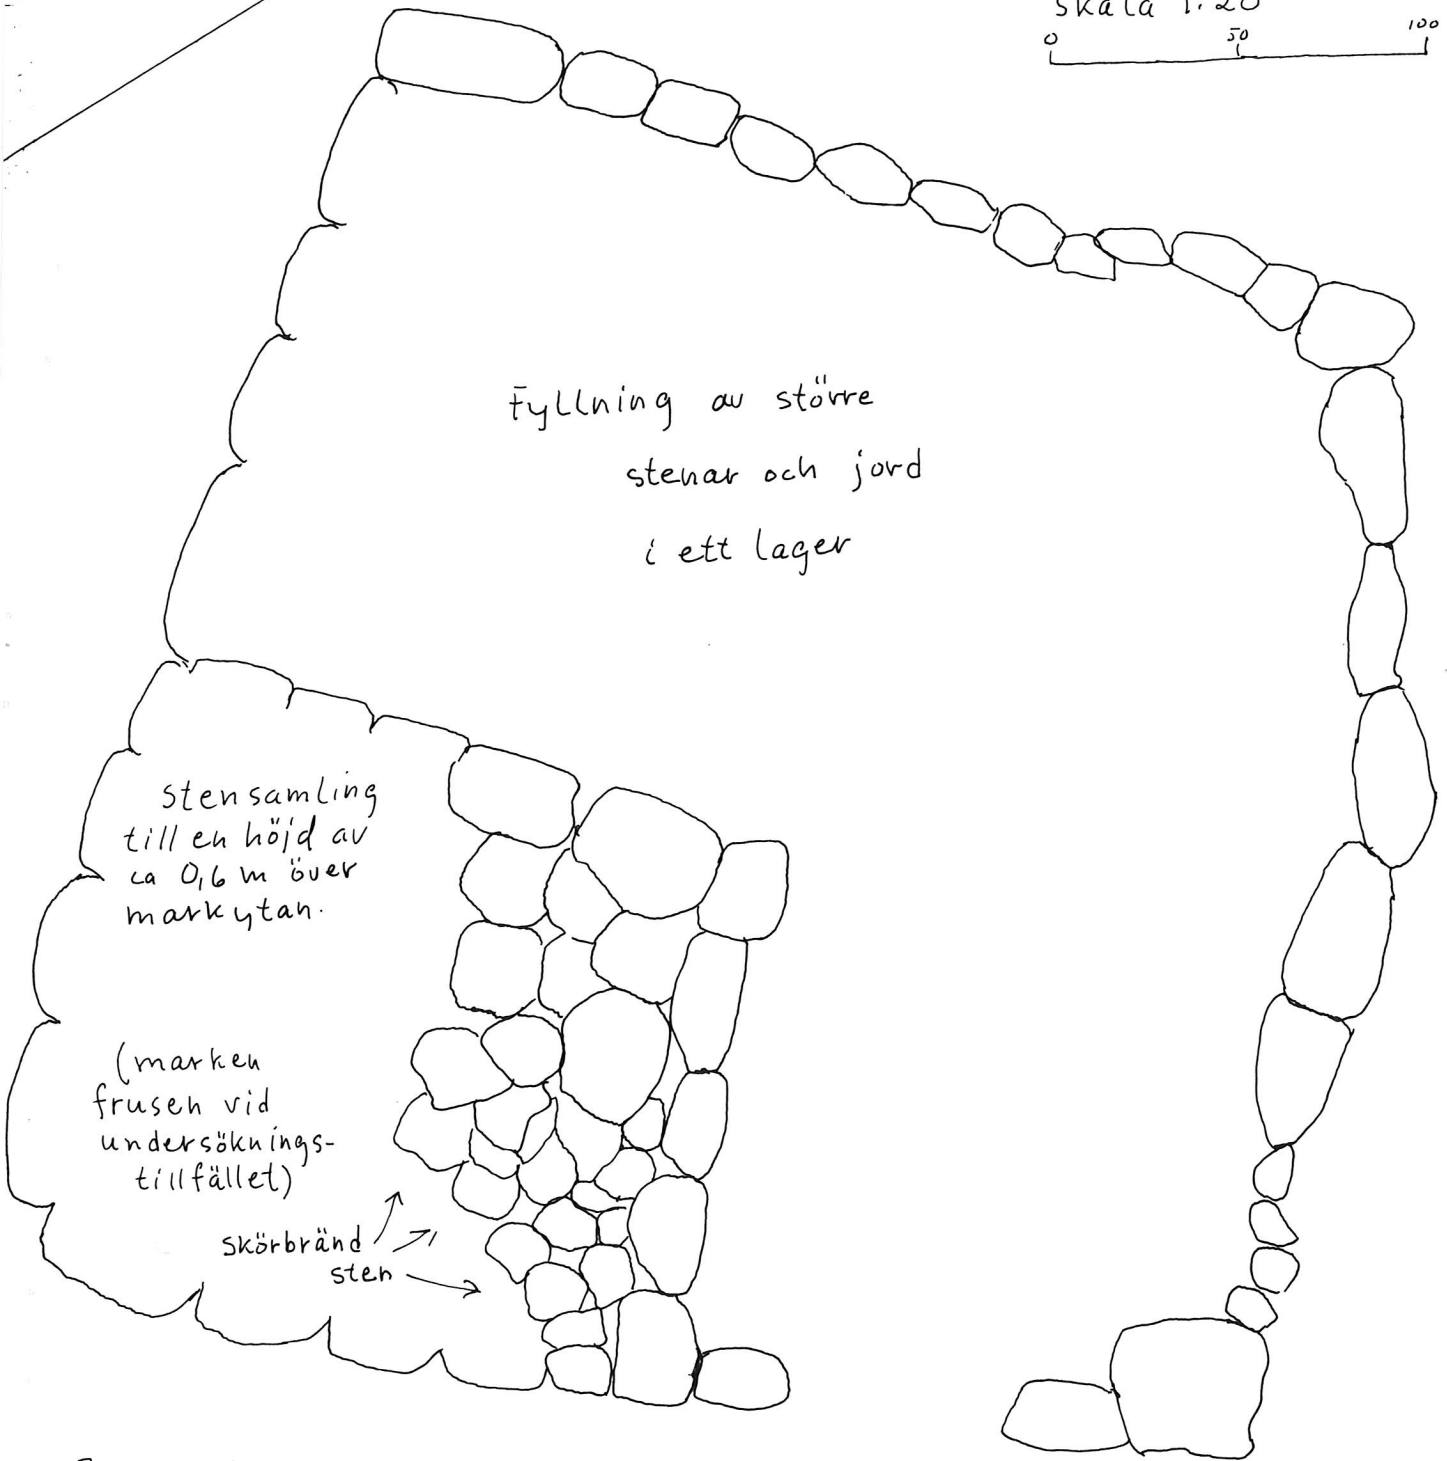 skala 1:20
0 50 100
Fyllning av större
stenar och jord
i ett lager
stensamling
till en höjd av
ca 0,6 m över
markytan.
(marken
frusen vid
undersöknings-
tillfället)
skörbränd
sten